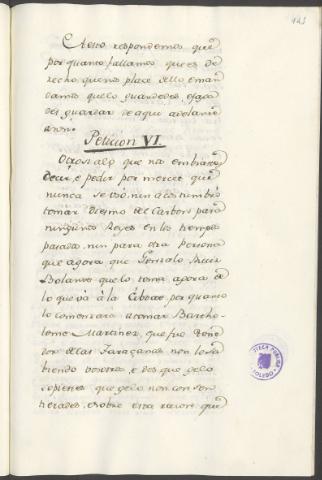 123
A esto respondemos que
por quanto fallamos que es de
recho, que nos place dello, e man
damos que lo guardedes, e faga
des guardar de aqui adelante
Peticion VI.
Otrosi alo que nos embiaron
decir, e pedir por merced que
nunca se usó, nin acostumbró
tomar Diezmo del Carbon para
ningunos Reyes en los tiempos
pasados, nin para otra Persona
que agora que Gonzalo
Bolante que lo toma agora de
lo que vá á la Cibdat por quanto
lo comenzara a tomar Bartho-
lome Martinez, que fue Tene
dor de las Taraçanas non lo sa
biendo vosotros, e des que gelo
sopiestes que gelo non con sen
tierades, e sobre esta razon que
BIBLIOTECA PUBLICA
TOLEDO